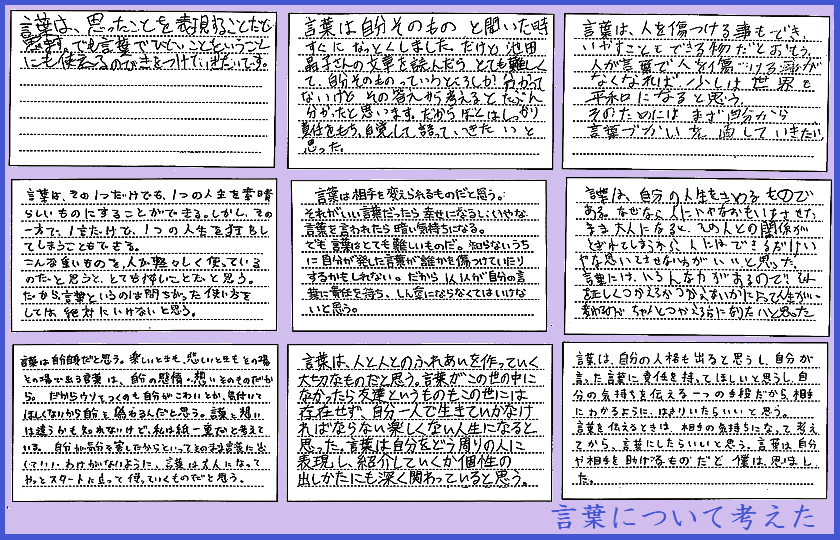 言葉は、思ったことを表現することだと
思います。でも言葉でひどいことということ
にも使えるので気をつけていきたいです。
言葉は自分そのものと聞いた時
すぐになっとくしました。だけど池田
晶子さんの文章を読んだらとても難しく
て、自分そのものっていうところしか分かって
ないけどその答えから考えるとたぶん
分かったと思います。だからぼくはしっかり
責任をもち、自覚して、語っていきたいと
思った。
言葉は、人を傷つける事もでき、
いやすこともできる物だとおもう。
人が言葉で人を傷つける事が
なくなれば少しは世界も
平和になると思う。
そのためにはまず自分から
言葉づかいを直していきたい。
言葉は、その1つだけでも、1つの人生を素晴
らしいものにすることができる。しかし、その
一方で、1言だけで、1つの人生を打ち
してしまうこともできる。
こんな重いものを、人が軽々しく使っている
のだと思うと、とても怖いことだと思う。
だから、言葉というのは間ちがった使い方を
しては絶対にいけないと思う。
言葉は相手を変えられるものだと思う。
それがいい言葉だったら幸せになるし、いやな
言葉を言われたら暗い気持ちになる。
でも言葉はとても難しいものだ。知らないうち
に自分が発した言葉が誰かを傷つけていたり
するかもしれない。だから1人1人が自分の言
葉に責任を持ち、しん重にならなくてはいけな
いと思う。
言葉は、自分の人生をきめるもので
ある。なぜなら人にいやなおもいをさせた
まま大人になると、その人との関係が
とぎれてしまうから、人にはできるだけい
やな思いをさせないほうがいいと思った。
言葉には、いろんな力があるので、それ
を正しくつかえるかつかえないかによって人生がいい
ちゃんとつかえる台になりたいと思った
言葉は自分自身だと思う。楽しいときも、悲しいときもその場
その場で出る言葉は、自分の感情・想いそのものだか
ら。だからウソをつくのも自分がこわいとか、気付いて
ほしくないから自分を偽わるんだと思う。言葉と想い
は違うかも知れないけど、私は紙一重だと考えて
いる。自分が気分を害したからといってそのまま言葉に出
していいわけがないように、言葉は大人になって
やっとスタートに立って使っていくものだと思う。
言葉は、人と人とのふれあいを作っていく
大切なものだと思う。言葉がこの世の中に
なかったら友達というものもこの世には
存在せず、自分一人で生きていかなけ
ればならない楽しくない人生になると
思った。言葉は自分をどう周りの人に
表現し、紹介していくか個性の
出しかたにも深く関わっていると思う。
言葉は、自分の人格も出ると思うし、自分が
言った言葉に責任を持ってほしいと思うし、自
分の気持ちを伝える一つの手段だから、相手
にわかるように、はなしたらいいと思う。
言葉を伝えるときは、相手の気持ちになって、考え
てから、言葉にしたらいいと思う。言葉は自分
や相手を助けるものだと僕は思いまし
た。
言葉について考えた